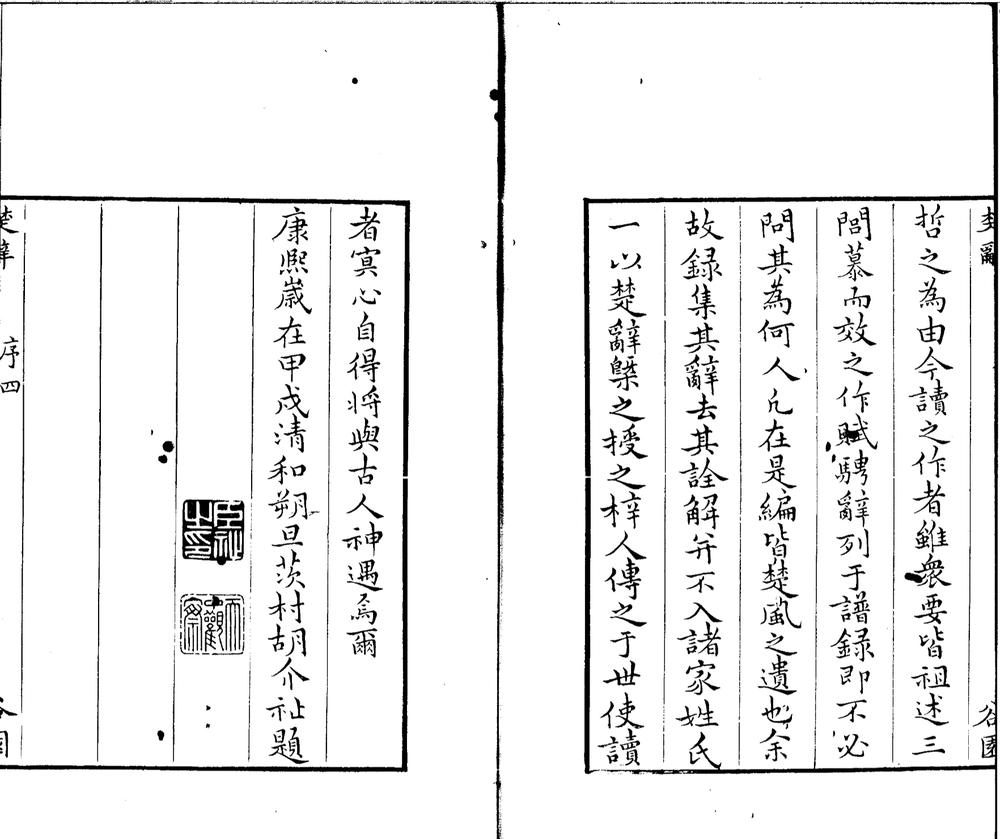 楚辭
谷園
哲之為由今讀之作者雖衆要皆祖述三
閭慕而效之作賦騁辭列于譜録即不必
問其為何人凡在是編皆楚風之遺也余
故録集其辭去其詮解并不入諸家姓氏
一以楚辭槩之授之梓人傳之于世使讀
者寞心自得將與古人神遇焉爾
康熙歲在甲戌清和朔旦茨村胡介祉題
楚辭
序四
谷園